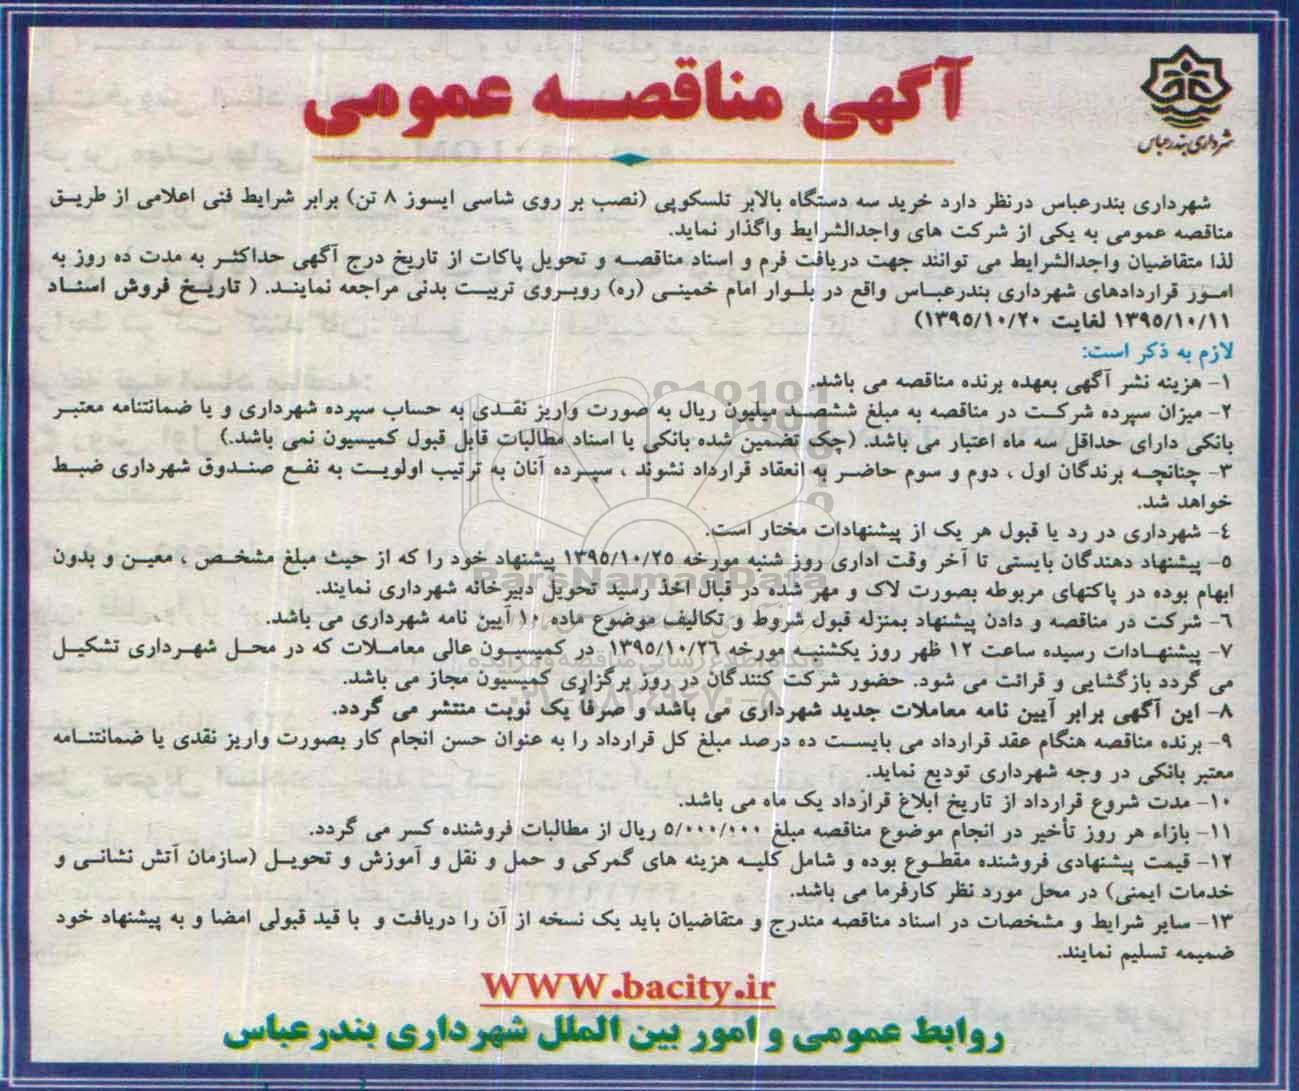 آگهی مناقصه عمومی
شهرداری بندرعباس
شهرداری بندرعباس درنظر دارد خرید سه دستگاه بالابر تلسکوپی (نصب بر روی شاسی ایسوز ۸ تن) برابر شرایط فنی اعلامی از طریق
مناقصه عمومی به یکی از شرکت های واجدالشرایط واگذار نماید.
لذا متقاضیان واجدالشرایط می توانند جهت دریافت فرم و اسناد مناقصه و تحویل پاکات از تاریخ درج آگهی حداکثر به مدت ده روز به
امور قراردادهای شهرداری بندرعباس واقع در بلوار امام خمینی (ره) روبروی تربیت بدنی مراجعه نمایند. ( تاریخ فروش اسناد
۱۳۹۵/۱۰/۱۱ لغایت ۱۳۹۵/۱۰/۲۰)
لازم به ذکر است:
۱- هزینه نشر آگهی بعهده برنده مناقصه می باشد.
۲- میزان سپرده شرکت در مناقصه به مبلغ ششصد میلیون ریال به صورت واریز نقدی به حساب سپرده شهرداری و یا ضمانتنامه معتبر
بانکی دارای حداقل سه ماه اعتبار می باشد. (چک تضمین شده بانکی یا اسناد مطالبات قابل قبول کمیسیون نمی باشد.)
۳- چنانچه برندگان اول ، دوم و سوم حاضر به انعقاد قرارداد نشوند ، سپرده آنان به ترتیب اولویت به نفع صندوق شهرداری ضبط
خواهد شد.
۴- شهرداری در رد یا قبول هر یک از پیشنهادات مختار است.
۵- پیشنهاد دهندگان بایستی تا آخر وقت اداری روز شنبه مورخه ۱۳۹۵/۱۰/۲۵ پیشنهاد خود را که از حیث مبلغ مشخص ، معین و بدون
ابهام بوده در پاکتهای مربوطه بصورت لاک و مهر شده در قبال اخذ رسید تحویل دبیرخانه شهرداری نمایند.
ParsNamadData
۶- شرکت در مناقصه و دادن پیشنهاد بمنزله قبول شروط و تکالیف موضوع ماده ۱۰ آیین نامه شهرداری می باشد.
۷- پیشنهادات رسیده ساعت ۱۲ ظهر روز یکشنبه مورخه ۱۳۹۵/۱۰/۲۶ در کمیسیون عالی معاملات که در محل شهرداری تشکیل
می گردد بازگشایی و قرائت می شود. حضور شرکت کنندگان در روز برگزاری کمیسیون مجاز می باشد.
۸- این آگهی برابر آیین نامه معاملات جدید شهرداری می باشد و صرفاً یک نوبت منتشر می گردد.
۹- برنده مناقصه هنگام عقد قرارداد می بایست ده درصد مبلغ کل قرارداد را به عنوان حسن انجام کار بصورت واریز نقدی یا ضمانتنامه
معتبر بانکی در وجه شهرداری تودیع نماید.
۱۰- مدت شروع قرارداد از تاریخ ابلاغ قرارداد یک ماه می باشد.
۱۱- بازاء هر روز تأخیر در انجام موضوع مناقصه مبلغ ۵/۰۰۰/۰۰۰ ریال از مطالبات فروشنده کسر می گردد.
۱۲- قیمت پیشنهادی فروشنده مقطوع بوده و شامل کلیه هزینه های گمرکی و حمل و نقل و آموزش و تحویل (سازمان آتش نشانی و
خدمات ایمنی) در محل مورد نظر کارفرما می باشد.
۱۳- سایر شرایط و مشخصات در اسناد مناقصه مندرج و متقاضیان باید یک نسخه از آن را دریافت و با قید قبولی امضا و به پیشنهاد خود
ضمیمه تسلیم نمایند.
WWW.bacity.ir
روابط عمومی و امور بین الملل شهرداری بندرعباس